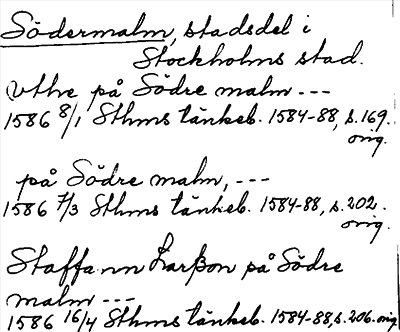 Södermalm, stadsdel i
Stockholms stad.
vthe på Södre malm ---
1586 8/1 Sthms tänkeb. 1584-88, s.169.
orig.
på Södre malm, ---
1586 7/3 Sthms tänkeb. 1584-88, s.202.
orig.
Staffann Larßon på Södre
malm ---
1586 16/4 Sthms tänkeb. 1584-88, s.206. orig